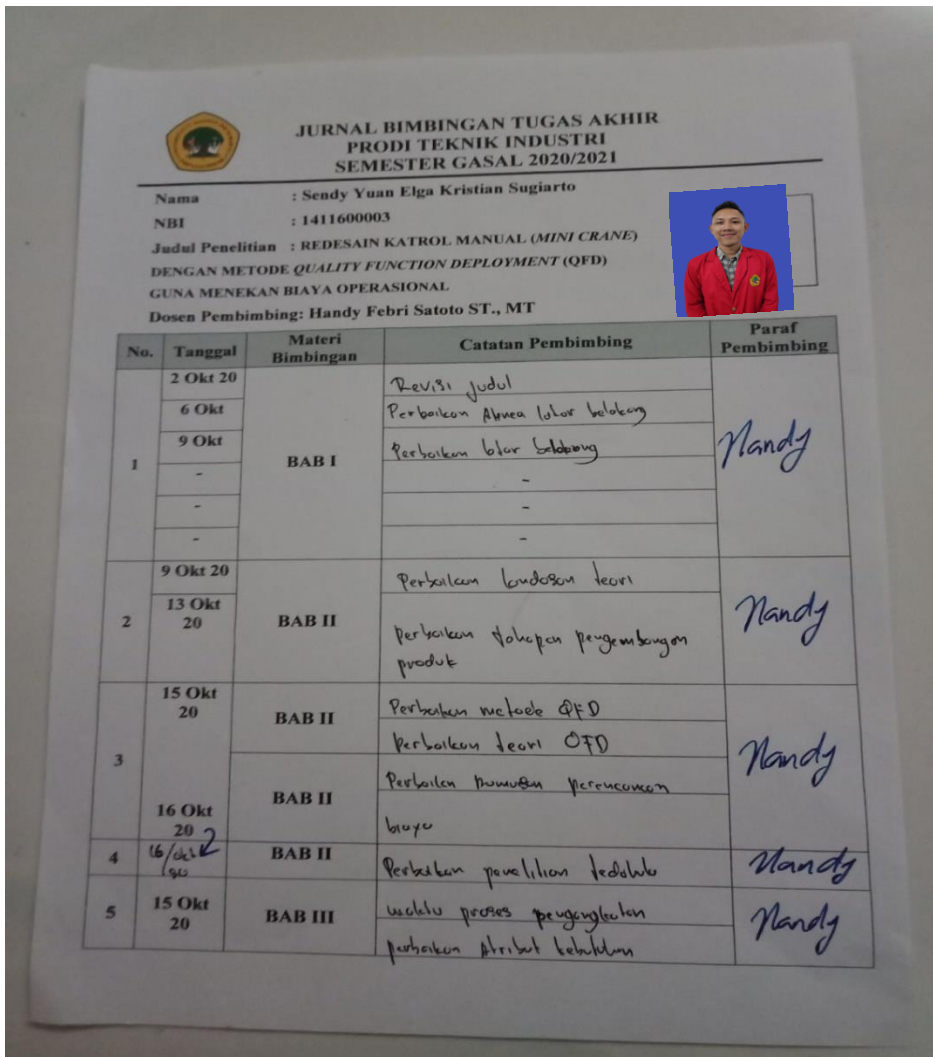 JURNAL BIMBINGAN TUGAS AKHIR
PRODI TEKNIK INDUSTRI
SEMESTER GASAL 2020/2021
Nama : Sendy Yuan Elga Kristian Sugiarto
NBI : 1411600003
Judul Penelitian : REDESAIN KATROL MANUAL (MINI CRANE)
DENGAN METODE QUALITY FUNCTION DEPLOYMENT (QFD)
GUNA MENEKAN BIAYA OPERASIONAL
Dosen Pembimbing: Handy Febri Satoto ST., MT
No. Tanggal Materi Bimbingan Catatan Pembimbing Paraf Pembimbing
1 BAB I Handy
2 Okt 20 Revisi judul
6 Okt Perbaikan Alinea latar belakang
9 Okt Perbaikan latar belakang
- -
- -
- -
2 BAB II Handy
9 Okt 20 Perbaikan landasan teori
13 Okt
20
perbaikan tahapan pengembangan
produk
3 Handy
15 Okt
20
BAB II
Perbaikan metode QFD
perbaikan teori QFD
16 Okt
20
BAB II
Perbaikan rumusan perencanaan
biaya
4 16/okt/20 BAB II Perbaikan penelitian Handy
5 15 Okt
20
BAB III Handy
waktu proses pengangkatan
perbaikan Atribut kebutuhan